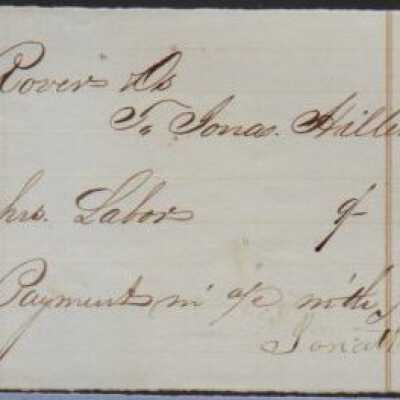 Rover Dr
To Jonas. Hille
hrs. Labor
Payment in a/c with